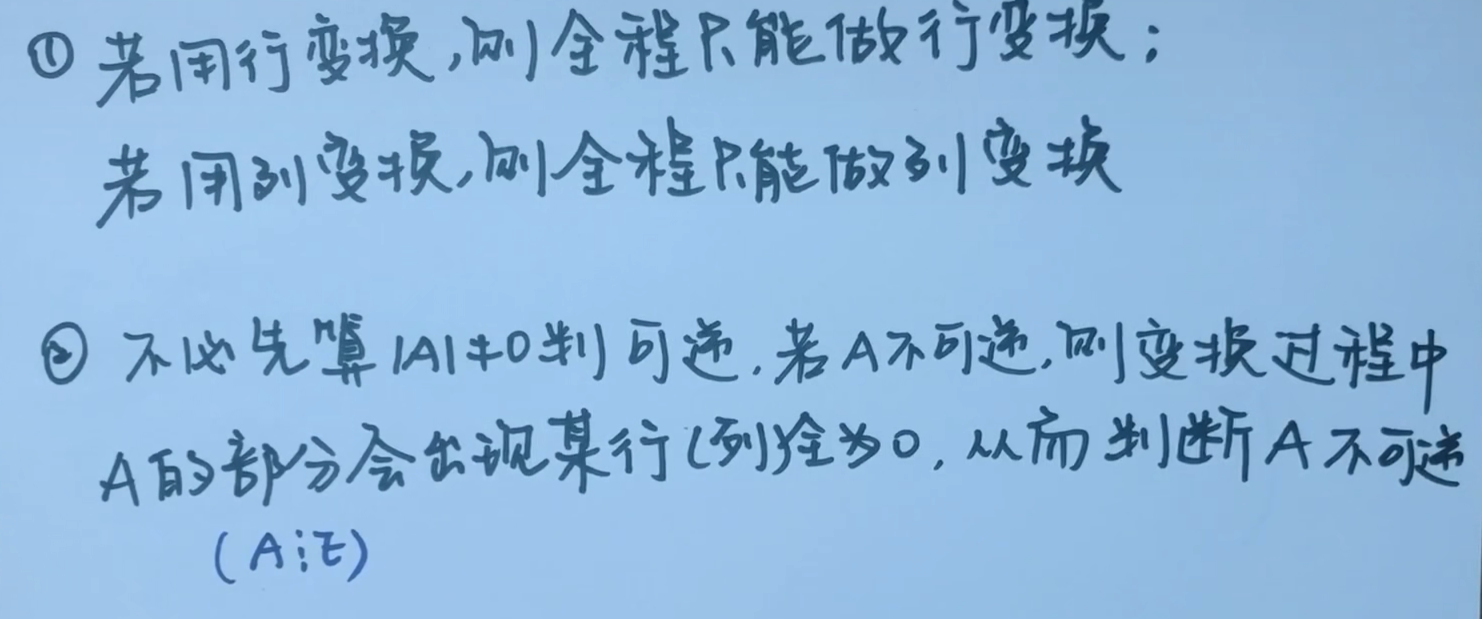 ① 若用行变换,则全程只能做行变换;
若用列变换,则全程只能做列变换
② 不必先算|A|≠0判可逆.若A不可逆,则变换过程中
A的部分会出现某行(列)全为0,从而判断A不可逆
(A⋮E)